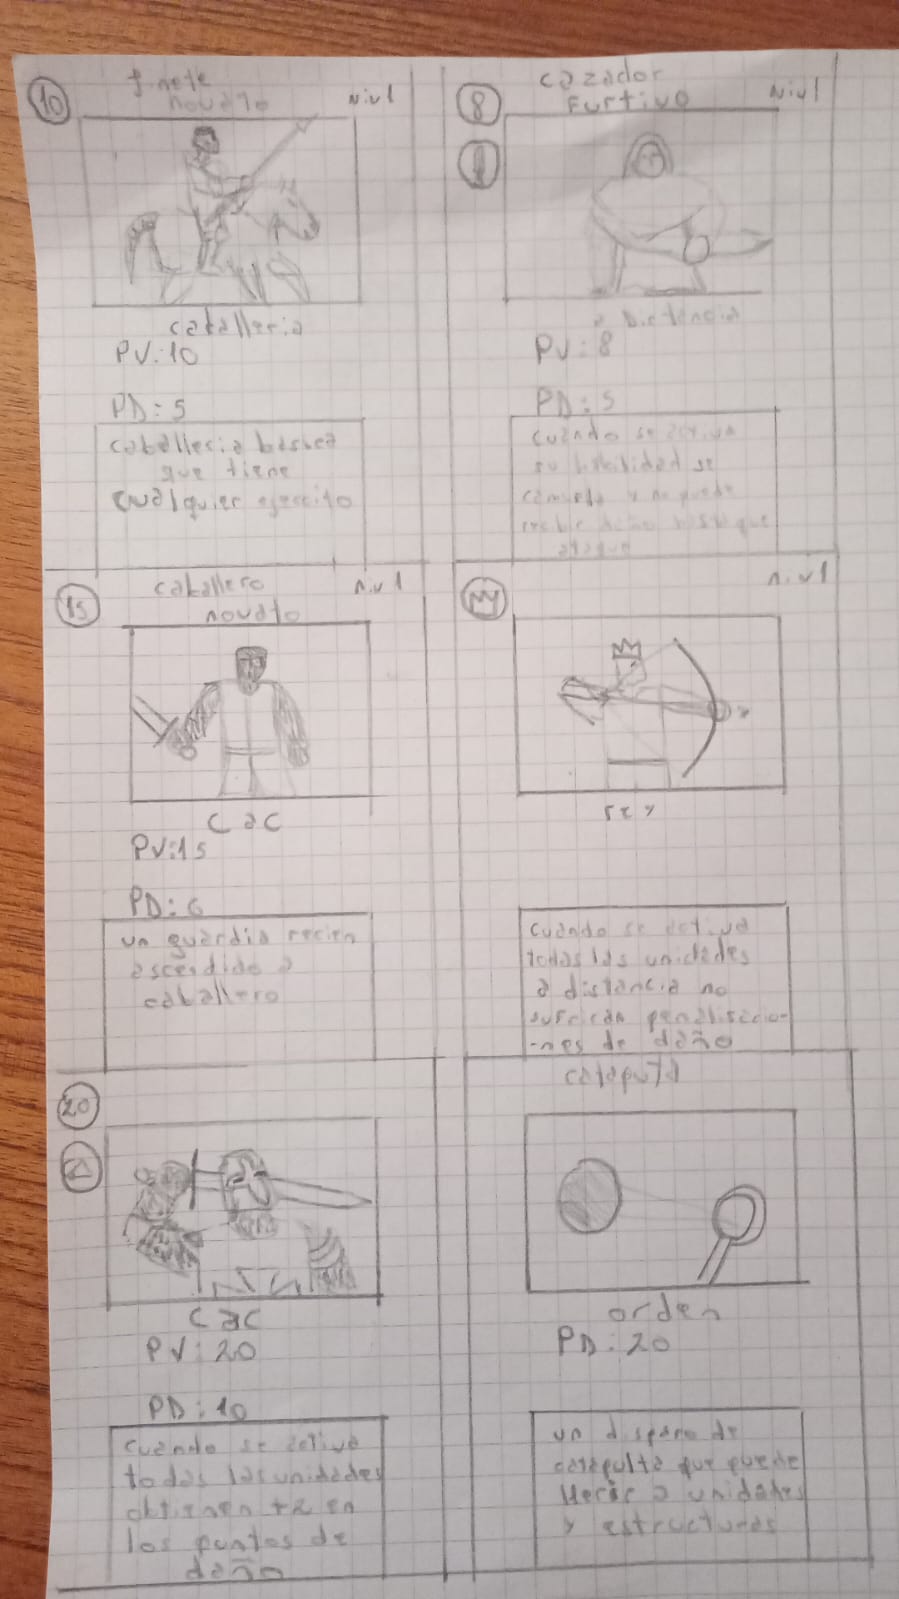 10
Jinete
novato
Niv1
caballeria
PV:10
PD:5
caballeria basica
que tiene
cualquier ejercito
8
cazador
Furtivo
Niv1
a Distancia
PV:8
PD:5
cuando se activa
su habilidad se
y no puede
que
15
caballero
novato
niv1
CaC
PV:15
PD:6
un guardia recien
ascendido a
caballero
niv1
rey
cuando se activa
todas las unidades
a distancia no
sufriran penalisacio-
-nes de daño
20
CaC
PV:20
PD:10
cuando se activa
todas las unidades
obtienen +2 en
los puntos de
daño
catapulta
orden
PD:20
un disparo de
catapulta que puede
herir a unidades
y estructuras